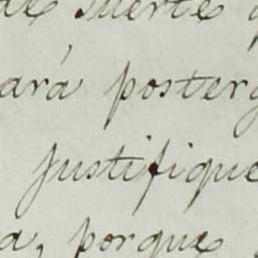 de suerte q
ará posterg
justifique
a, porque